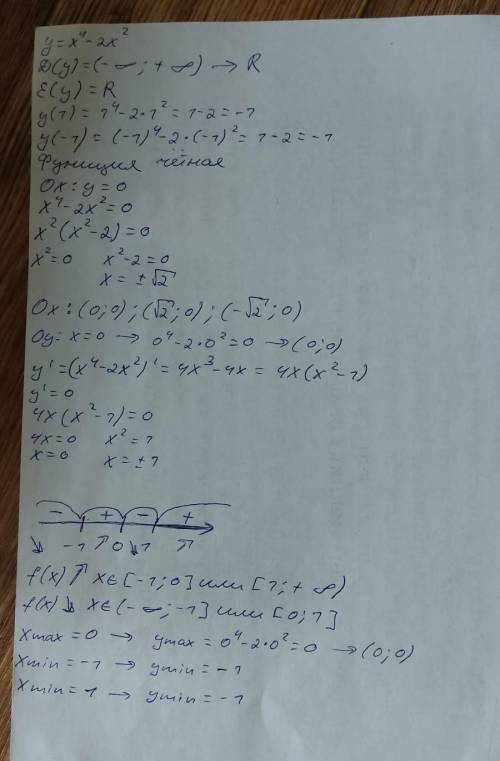 y=x⁴-2x²
D(y)=(-∞;+∞) → R
E(y)=R
y(1)=1⁴-2•1²=1-2=-1
y(-1)=(-1)⁴-2•(-1)²=1-2=-1
Функция чётная
Ox: y=0
x⁴-2x²=0
x²(x²-2)=0
x²=0 x²-2=0
x=±√2
Ox: (0;0); (√2;0); (-√2;0)
Oy: x=0 → 0⁴-2•0²=0 → (0;0)
y'=(x⁴-2x²)'=4x³-4x=4x(x²-1)
y'=0
4x(x²-1)=0
4x=0 x²=1
x=0 x=±1
- + - +
↘ -1 ↗ 0 ↘ 1 ↗
f(x)↗ x∈[-1;0] или [1;+∞)
f(x)↘ x∈(-∞;-1] или [0;1]
xmax=0 → ymax=0⁴-2•0²=0 → (0;0)
xmin=-1 → ymin=-1
xmin=1 → ymin=-1